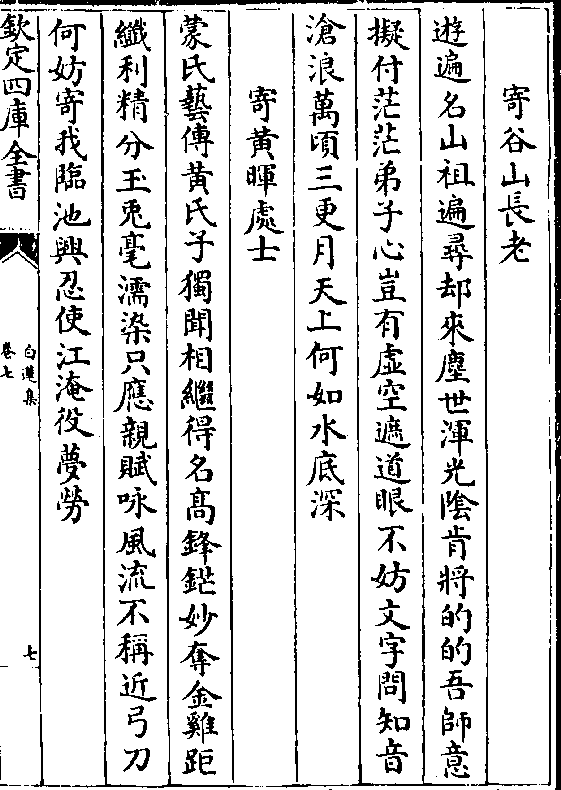 寄谷山長老
遊遍名山祖遍尋却來塵世渾光陰肯將的的吾師意
擬付茫茫弟子心豈有虚空遮道眼不妨文字問知音
滄浪萬頃三更月天上何如水底深
寄黄暉處士
蒙氏藝傳黄氏子獨聞相繼得名髙鋒鋩妙奪金雞距
纎利精分玉兎毫濡染只應親賦咏風流不稱近弓刀
何妨寄我臨池興忍使江淹役夢勞
欽定四庫全書
白蓮集
卷七
七